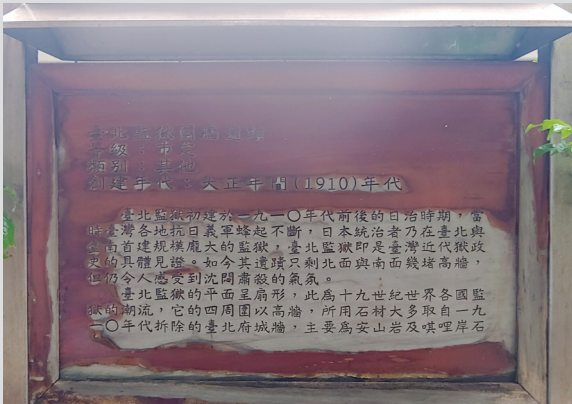 臺北監獄圍牆遺蹟
等級：市定
類別：其他
創建年代：大正年間(1910)年代
臺北監獄初建於一九一〇年代前後的日治時期，當
時臺灣各地抗日義軍蜂起不斷，日本統治者乃在臺北與
臺南首建規模龐大的監獄，臺北監獄即是臺灣近代獄政
史的具體見證。如今其遺蹟只剩北面與南面幾堵高牆，
但仍令人感受到沈悶肅殺的氣氛。
臺北監獄的平面呈扇形，此為十九世紀世界各國監
獄的潮流，它的四周圍以高牆，所用石材大多取自一九
一〇年代拆除的臺北府城牆，主要為安山岩及唭哩岸石